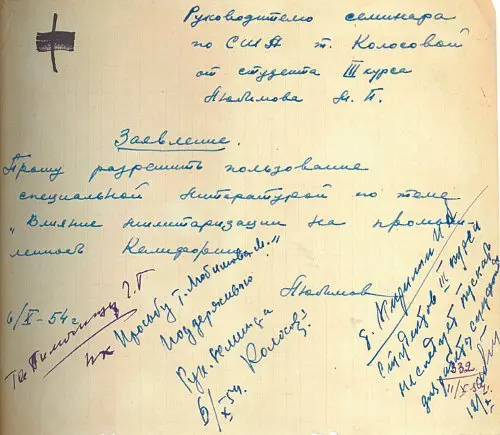 Руководителю семинара
по США т. Колосовой
от студента III курса
Любимова М. П.
Заявление.
Прошу разрешить пользование
специальной литературой по теме
"Влияние милитаризации на промыш-
ленность Калифорнии"
Любимов
6/X-54 г.
Просьбу т. Любимова М.
поддерживаю
Рук. семинара
Колосова
6/X 54.
Студентов III курса
не следует пускать
для работы
332
11/X-54